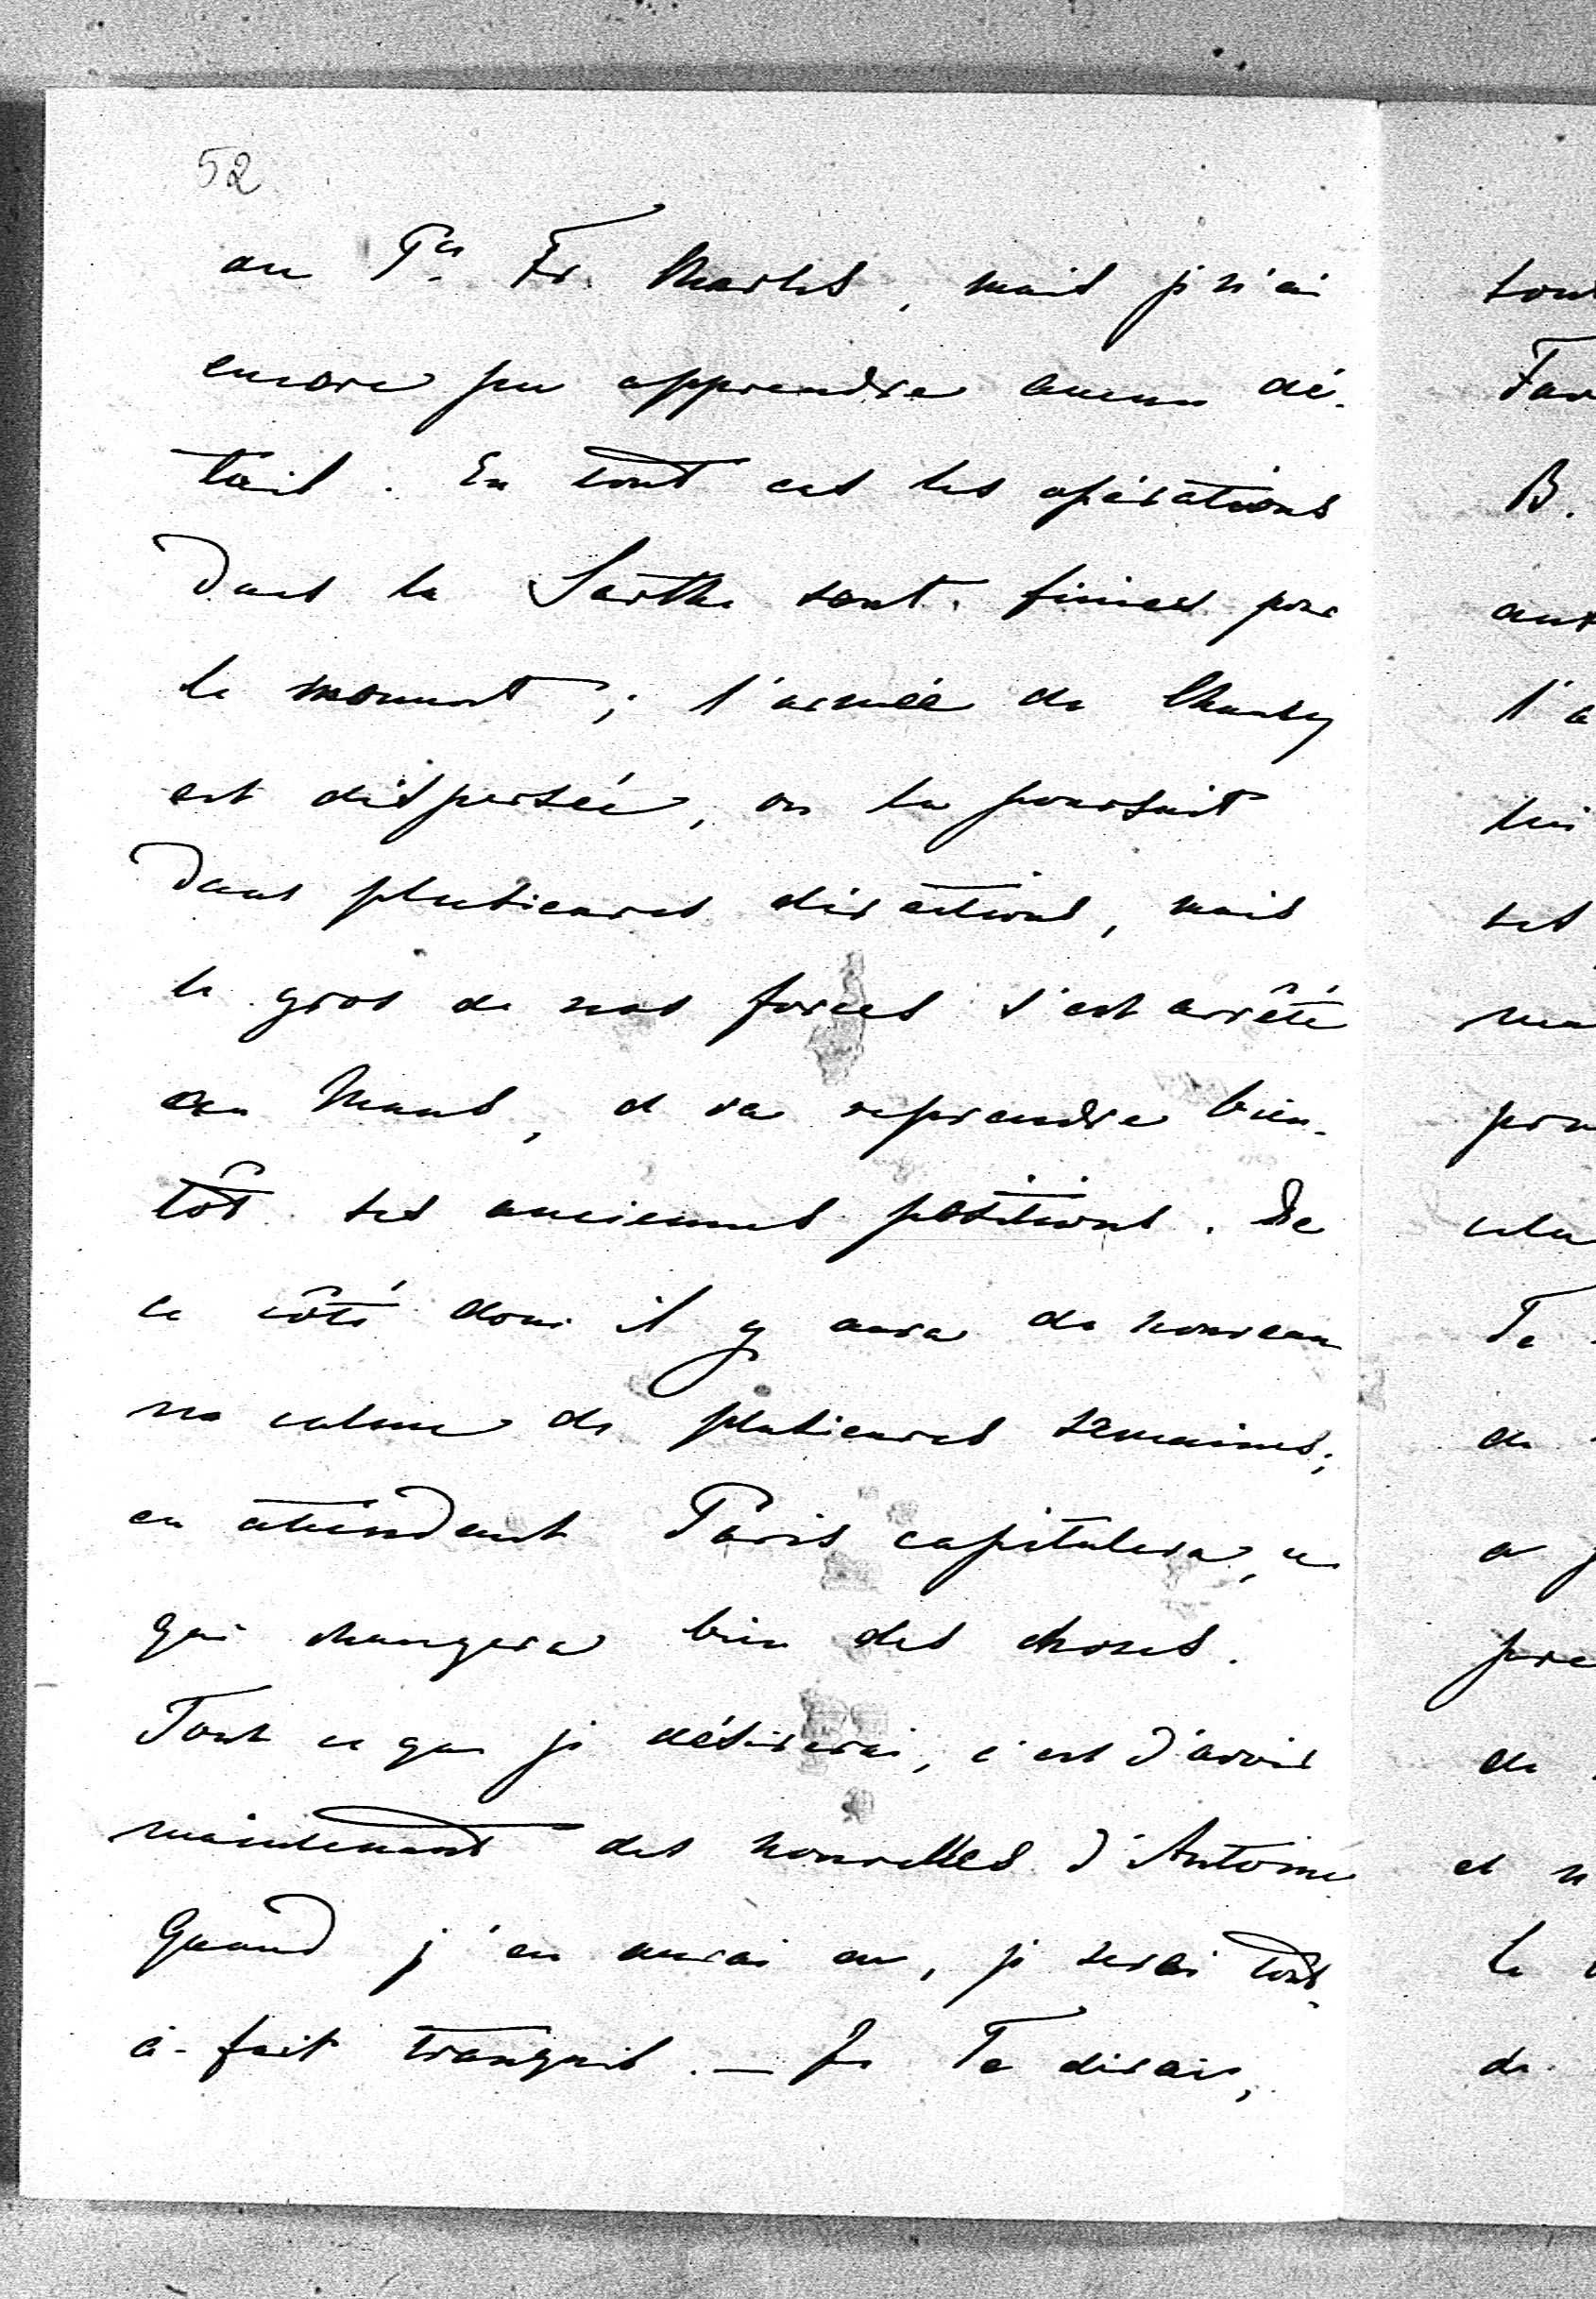 52
au Pce Fr. Charles, mais je n'ai
encore pu apprendre aucun dé-
tail. En tout cas les opérations
dans la Sarthe sont finies pour
le moment; l'armée de Chanzy
est dispersée, on la poursuit
dans plusieures directions, mais
le gros de nos forces s'est arrêté
au Mans, et va reprendre bien-
tôt ses anciennes positions. De
ce côté donc il y aura de nouveau
un calme de plusieures semaines;
en attendant Paris capitulera, ce
qui changera bien des choses.
Tout ce que je désirerai, c'est d'avoir
maintenant des nouvelles d'Antoine
Quand j'en aurai eu, je serai tout-
à-fait tranquil. — Je Te dirais,